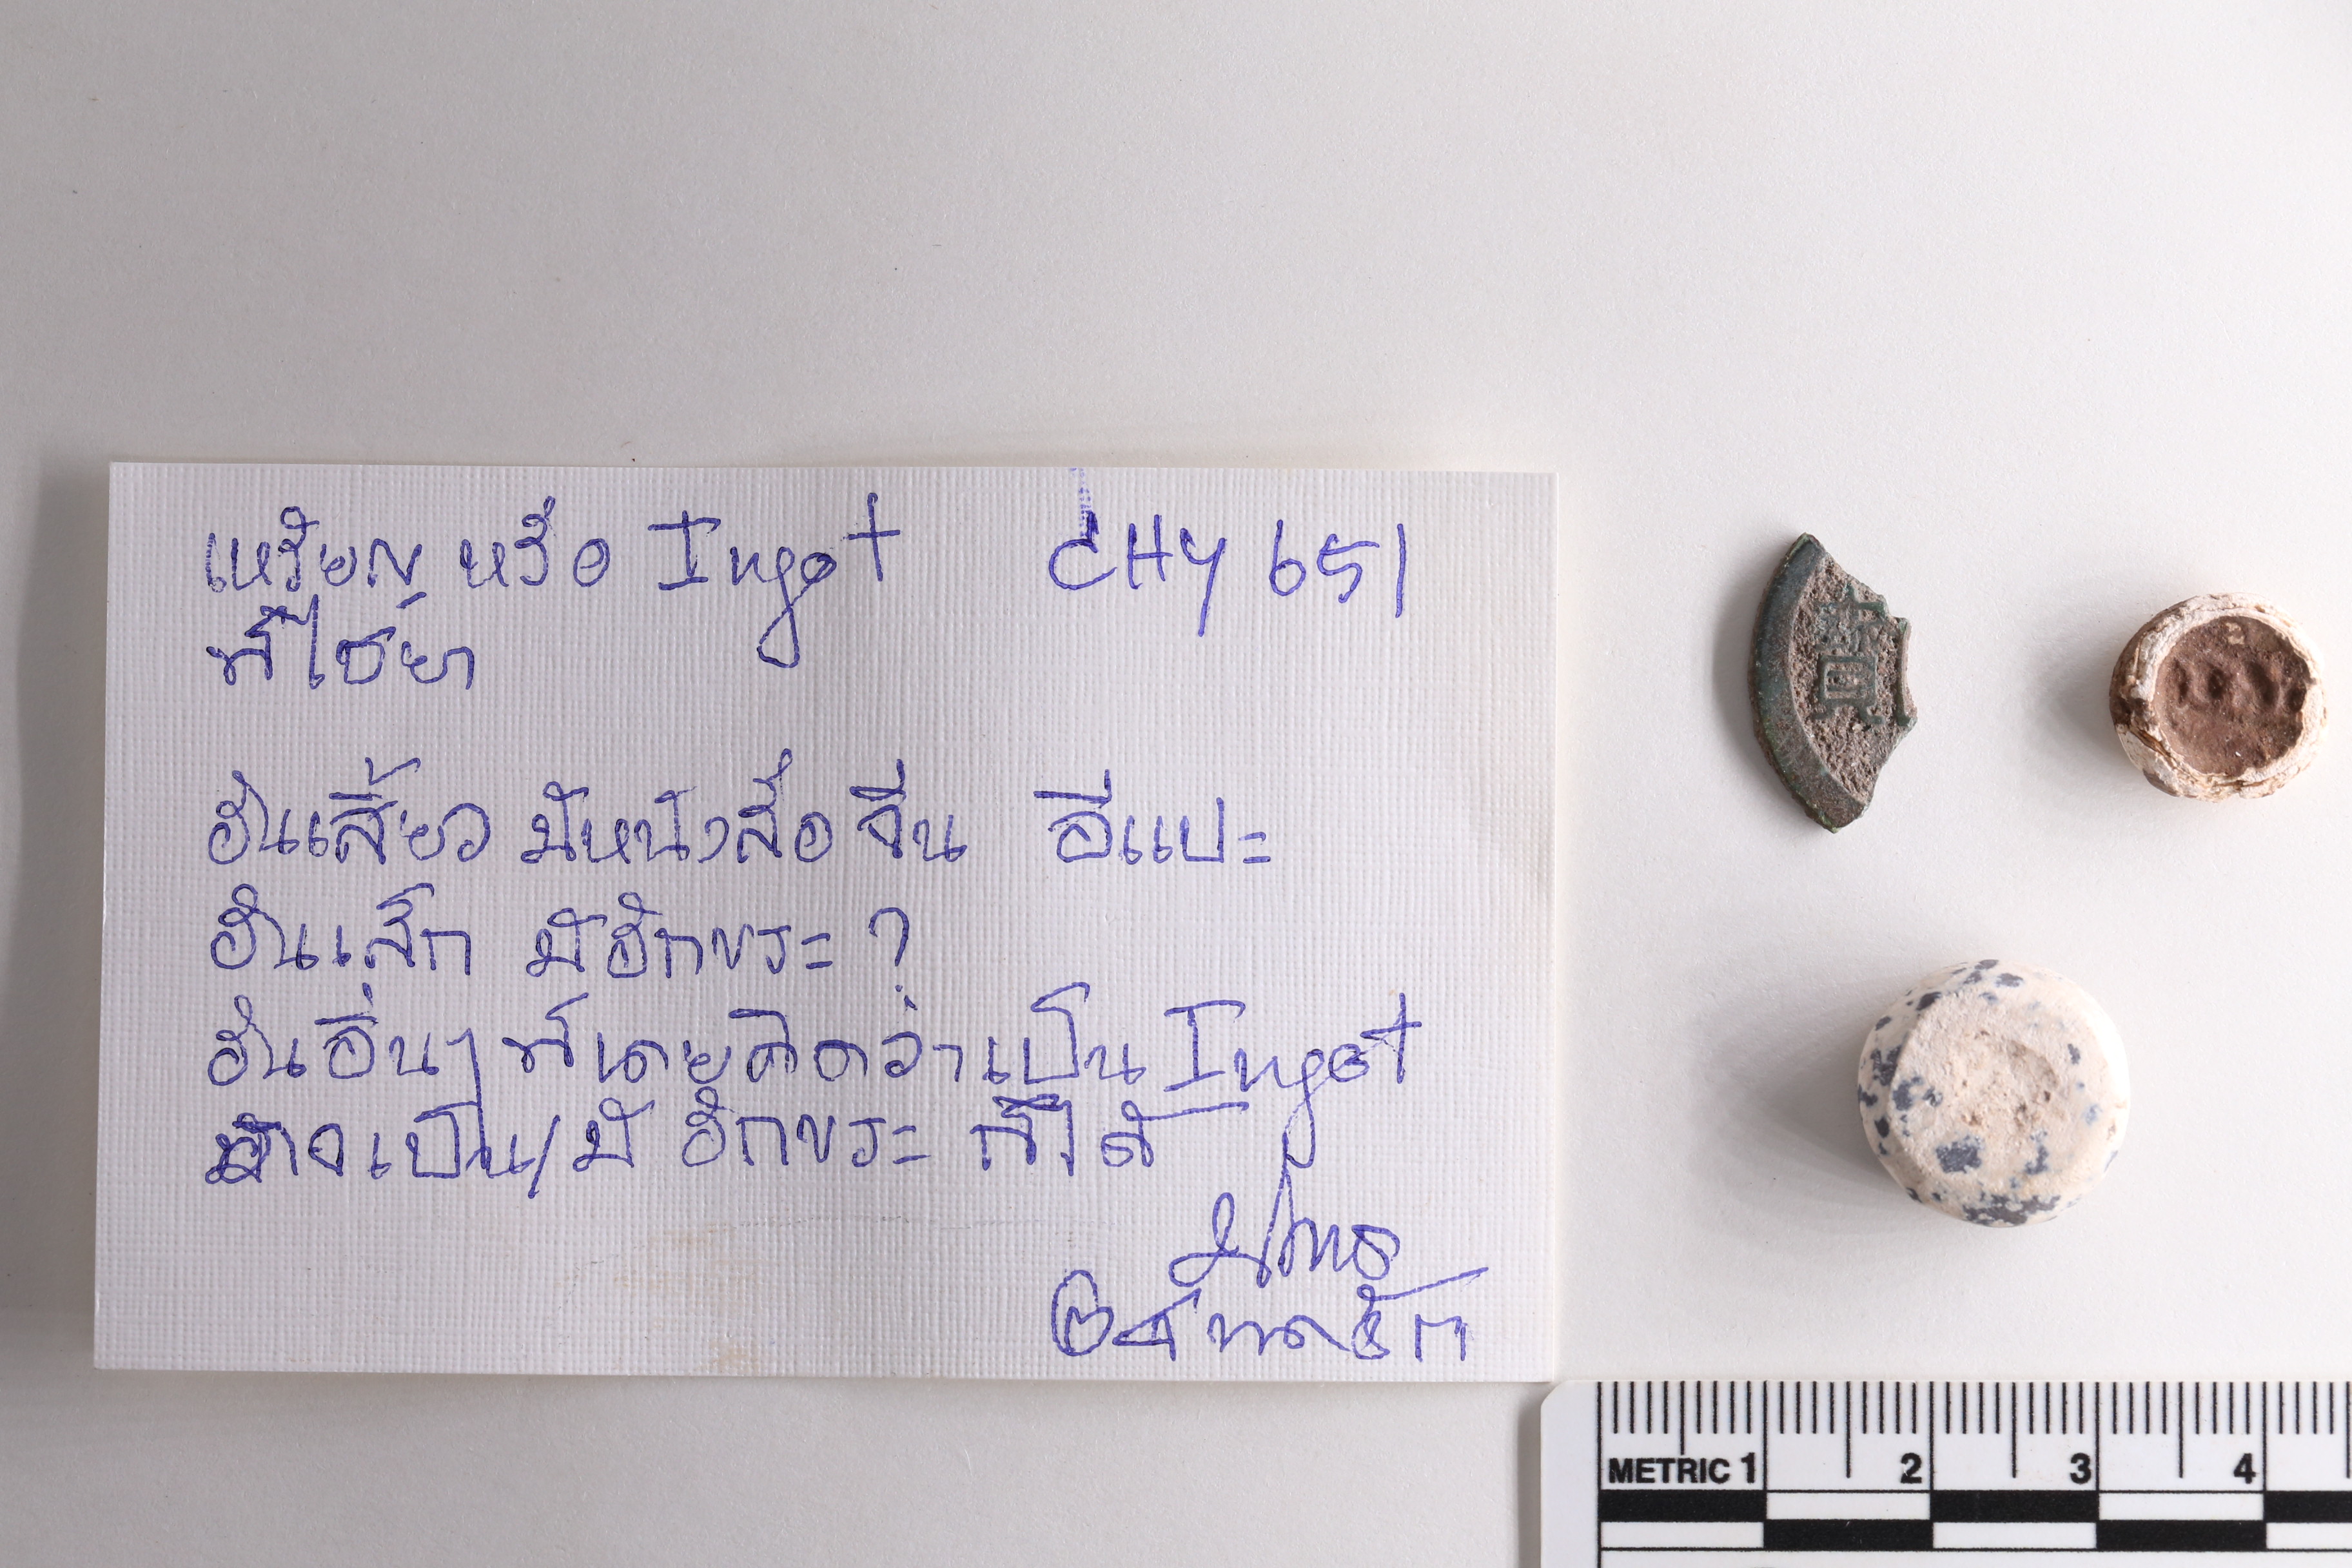 เหรียญ หรือ Ingot CHY 651
ที่ไชยา
อันเสี้ยว มีหนังสือจีน อีแปะ
อันเล็ก มีอักขระ ?
อันอื่นๆ ที่เคยคิดว่าเป็น Ingot
อาจเป็น/มี อักขระ ก็ได้
寶
METRIC 1 2 3 4